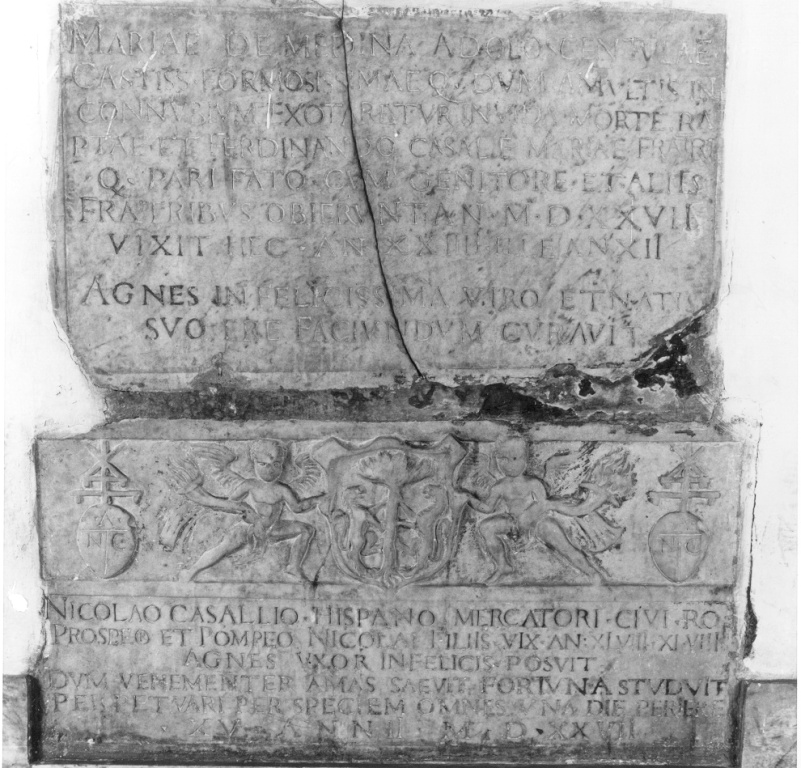 MARIAE DE MEDINA ADOLO·CENTULAE
CASTISS·FORMOSISSIMAEQ·DVM A MVLTIS IN
CONNVBIVM EXOTARETVR INVIDA MORTE RA
PTAE·ET FERDINANDO CASALIE MARIAE FRATRI
Q·PARI FATO CVM GENITORE·ET·ALIIS
FRATRIBVS OBIERVNT AN·M·D·XXVII
VIXIT HEC·AN·XXIIII ILLE AN XII
AGNES INFELICISSIMA VIRO ET NATIS
SVO ERE FACIVNDVM CVRAVIT
N C
N C
NICOLAO CASALLIO·HISPANO MERCATORI·CIVI·RO
PROSPERO ET POMPEO NICOLAI FILIIS VIX·AN·XLVII·XI·VIIII
AGNES VXOR INFELICIS·POSVIT
DVM VEHEMENTER AMAS SAEVIT FORTVNA STVDVIT
PER ET VARI PER SPECIEM OMNES VNA DIE PERIERE
ANNI M·D·XXVII